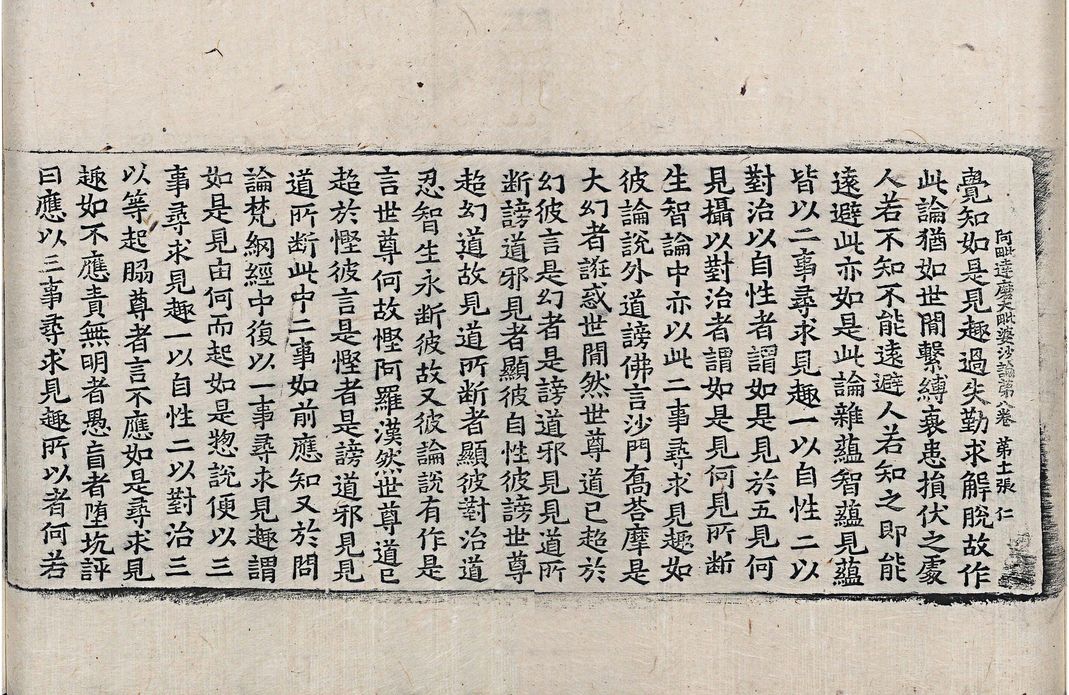 阿毗達磨大毗婆沙論第八卷　第十一張　仁
覺知如是見趣過失勤求解脫故作
此論猶如世間繫縛衰患損伏之處
人若不知不能遠避人若知之即能
遠避此亦如是此論雜蘊智蘊見蘊
皆以二事尋求見趣一以自性二以
對治以自性者謂如是見於五見何
見攝以對治者謂如是見何見所斷
生智論中亦以此二事尋求見趣如
彼論說外道謗佛言沙門喬荅摩是
大幻者誑惑世間然世尊道已超於
幻彼言是幻者是謗道邪見見道所
断謗道邪見者顯彼自性彼謗世尊
超幻道故見道所断者顯彼對治道
忍智生永断彼故又彼論說有作是
言世尊何故慳阿羅漢然世尊道已
超於慳彼言是慳者是謗道邪見見
道所断此中二事如前應知又於問
論梵網經中復以一事尋求見趣謂
如是見由何而起如是惣說便以三
事尋求見趣一以自性二以對治三
以等起脇尊者言不應如是尋求見
趣如不應責無明者愚盲者堕坑評
曰應以三事尋求見趣所以者何若